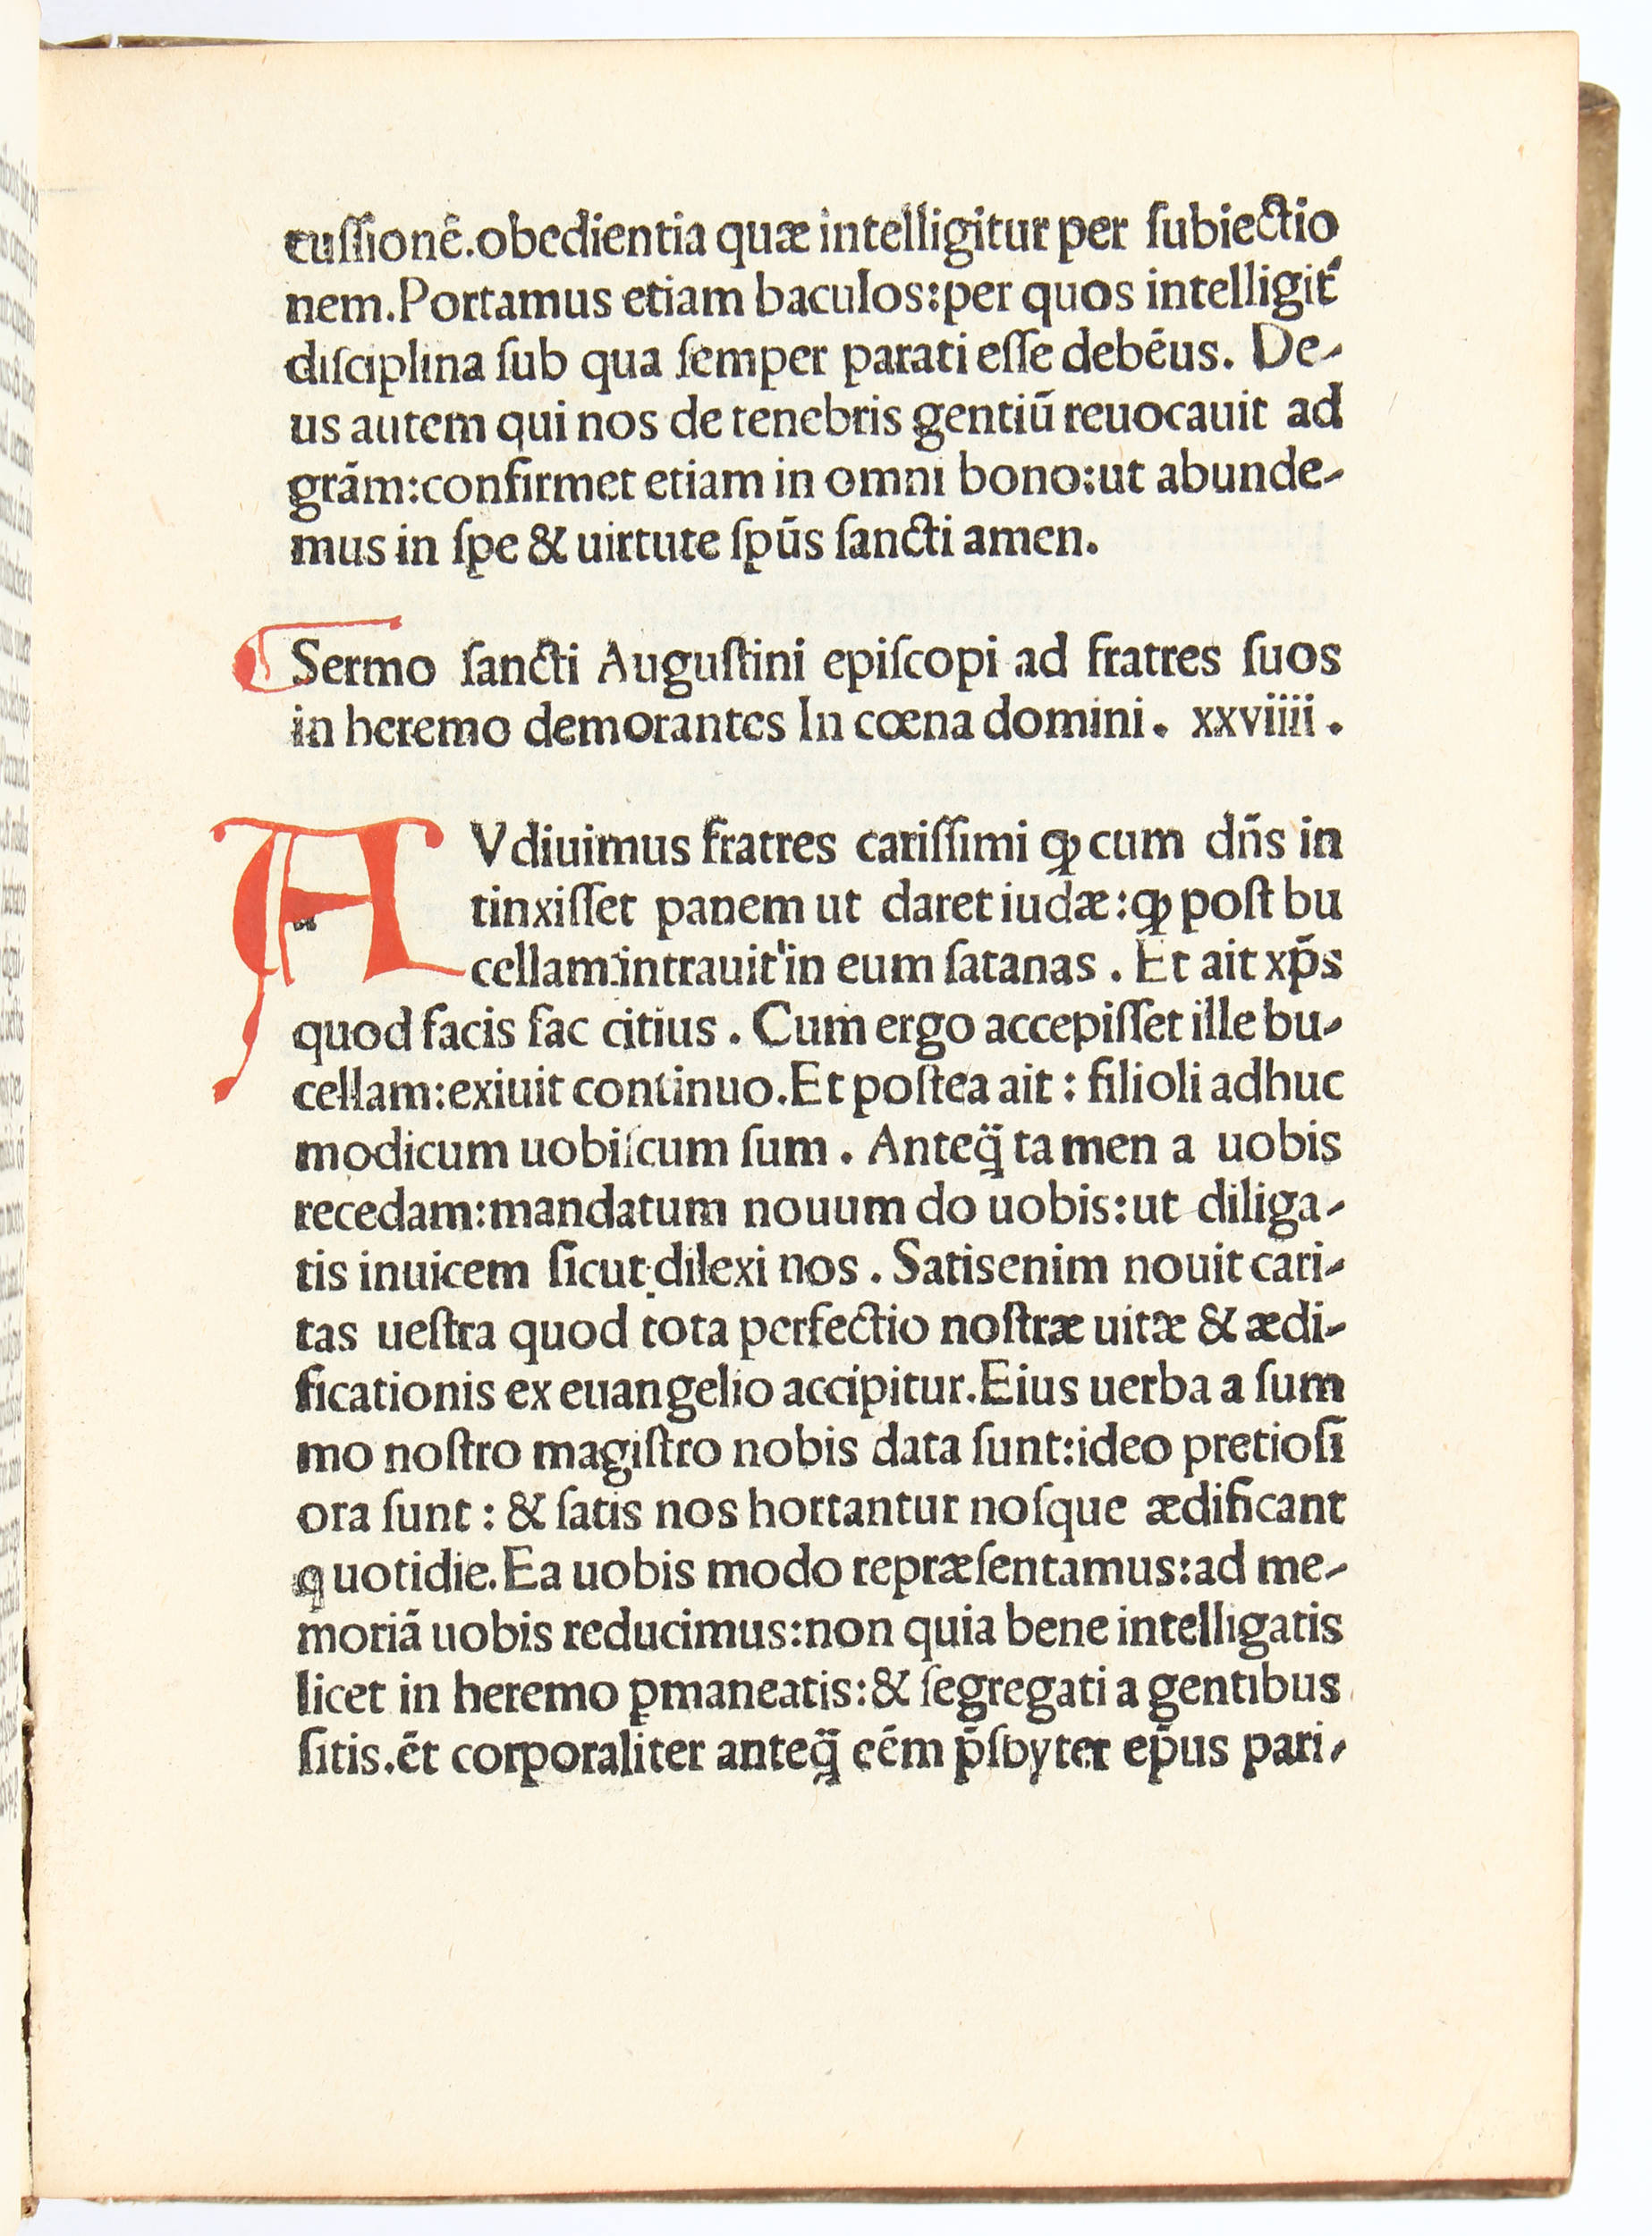 cuſſionē.obedientia quæ intelligitur per ſubiectio
nem.Portamus etiam baculos:per quos intelligit᷑
diſciplina ſub qua ſemper parati eſſe debēus. De-
us autem qui nos de tenebris gentiū reuocauit ad
grām:confirmet etiam in omni bono:ut abunde-
mus in ſpe & uirtute ſpūs ſancti amen.
Sermo ſancti Auguſtini epiſcopi ad fratres ſuos
in heremo demorantes In cœna domini. xxviiii.
AVdiuimus fratres cariſſimi ꝙ cum dn̄s in
tinxiſſet panem ut daret iudæ:ꝙ poſt bu
cellam:intrauit in eum ſatanas. Et ait xp̄s
quod facis fac citius. Cum ergo accepiſſet ille bu-
cellam:exiuit continuo.Et poſtea ait: filioli adhuc
modicum uobiſcum ſum. Anteq̄ tamen a uobis
recedam:mandatum nouum do uobis:ut diliga-
tis inuicem ſicut dilexi nos. Satisenim nouit cari-
tas ueſtra quod tota perfectio noſtræ uitæ & ædi-
ficationis ex euangelio accipitur.Eius uerba a ſum
mo noſtro magiſtro nobis data ſunt:ideo pretioſi
ora ſunt: & ſatis nos hortantur noſque ædificant
quotidie.Ea uobis modo repræſentamus:ad me-
moriā uobis reducimus:non quia bene intelligatis
licet in heremo ꝑmaneatis:& ſegregati a gentibus
ſitis.ēt corporaliter anteq̄ eēm p̄ſbyter ep̄us pari-